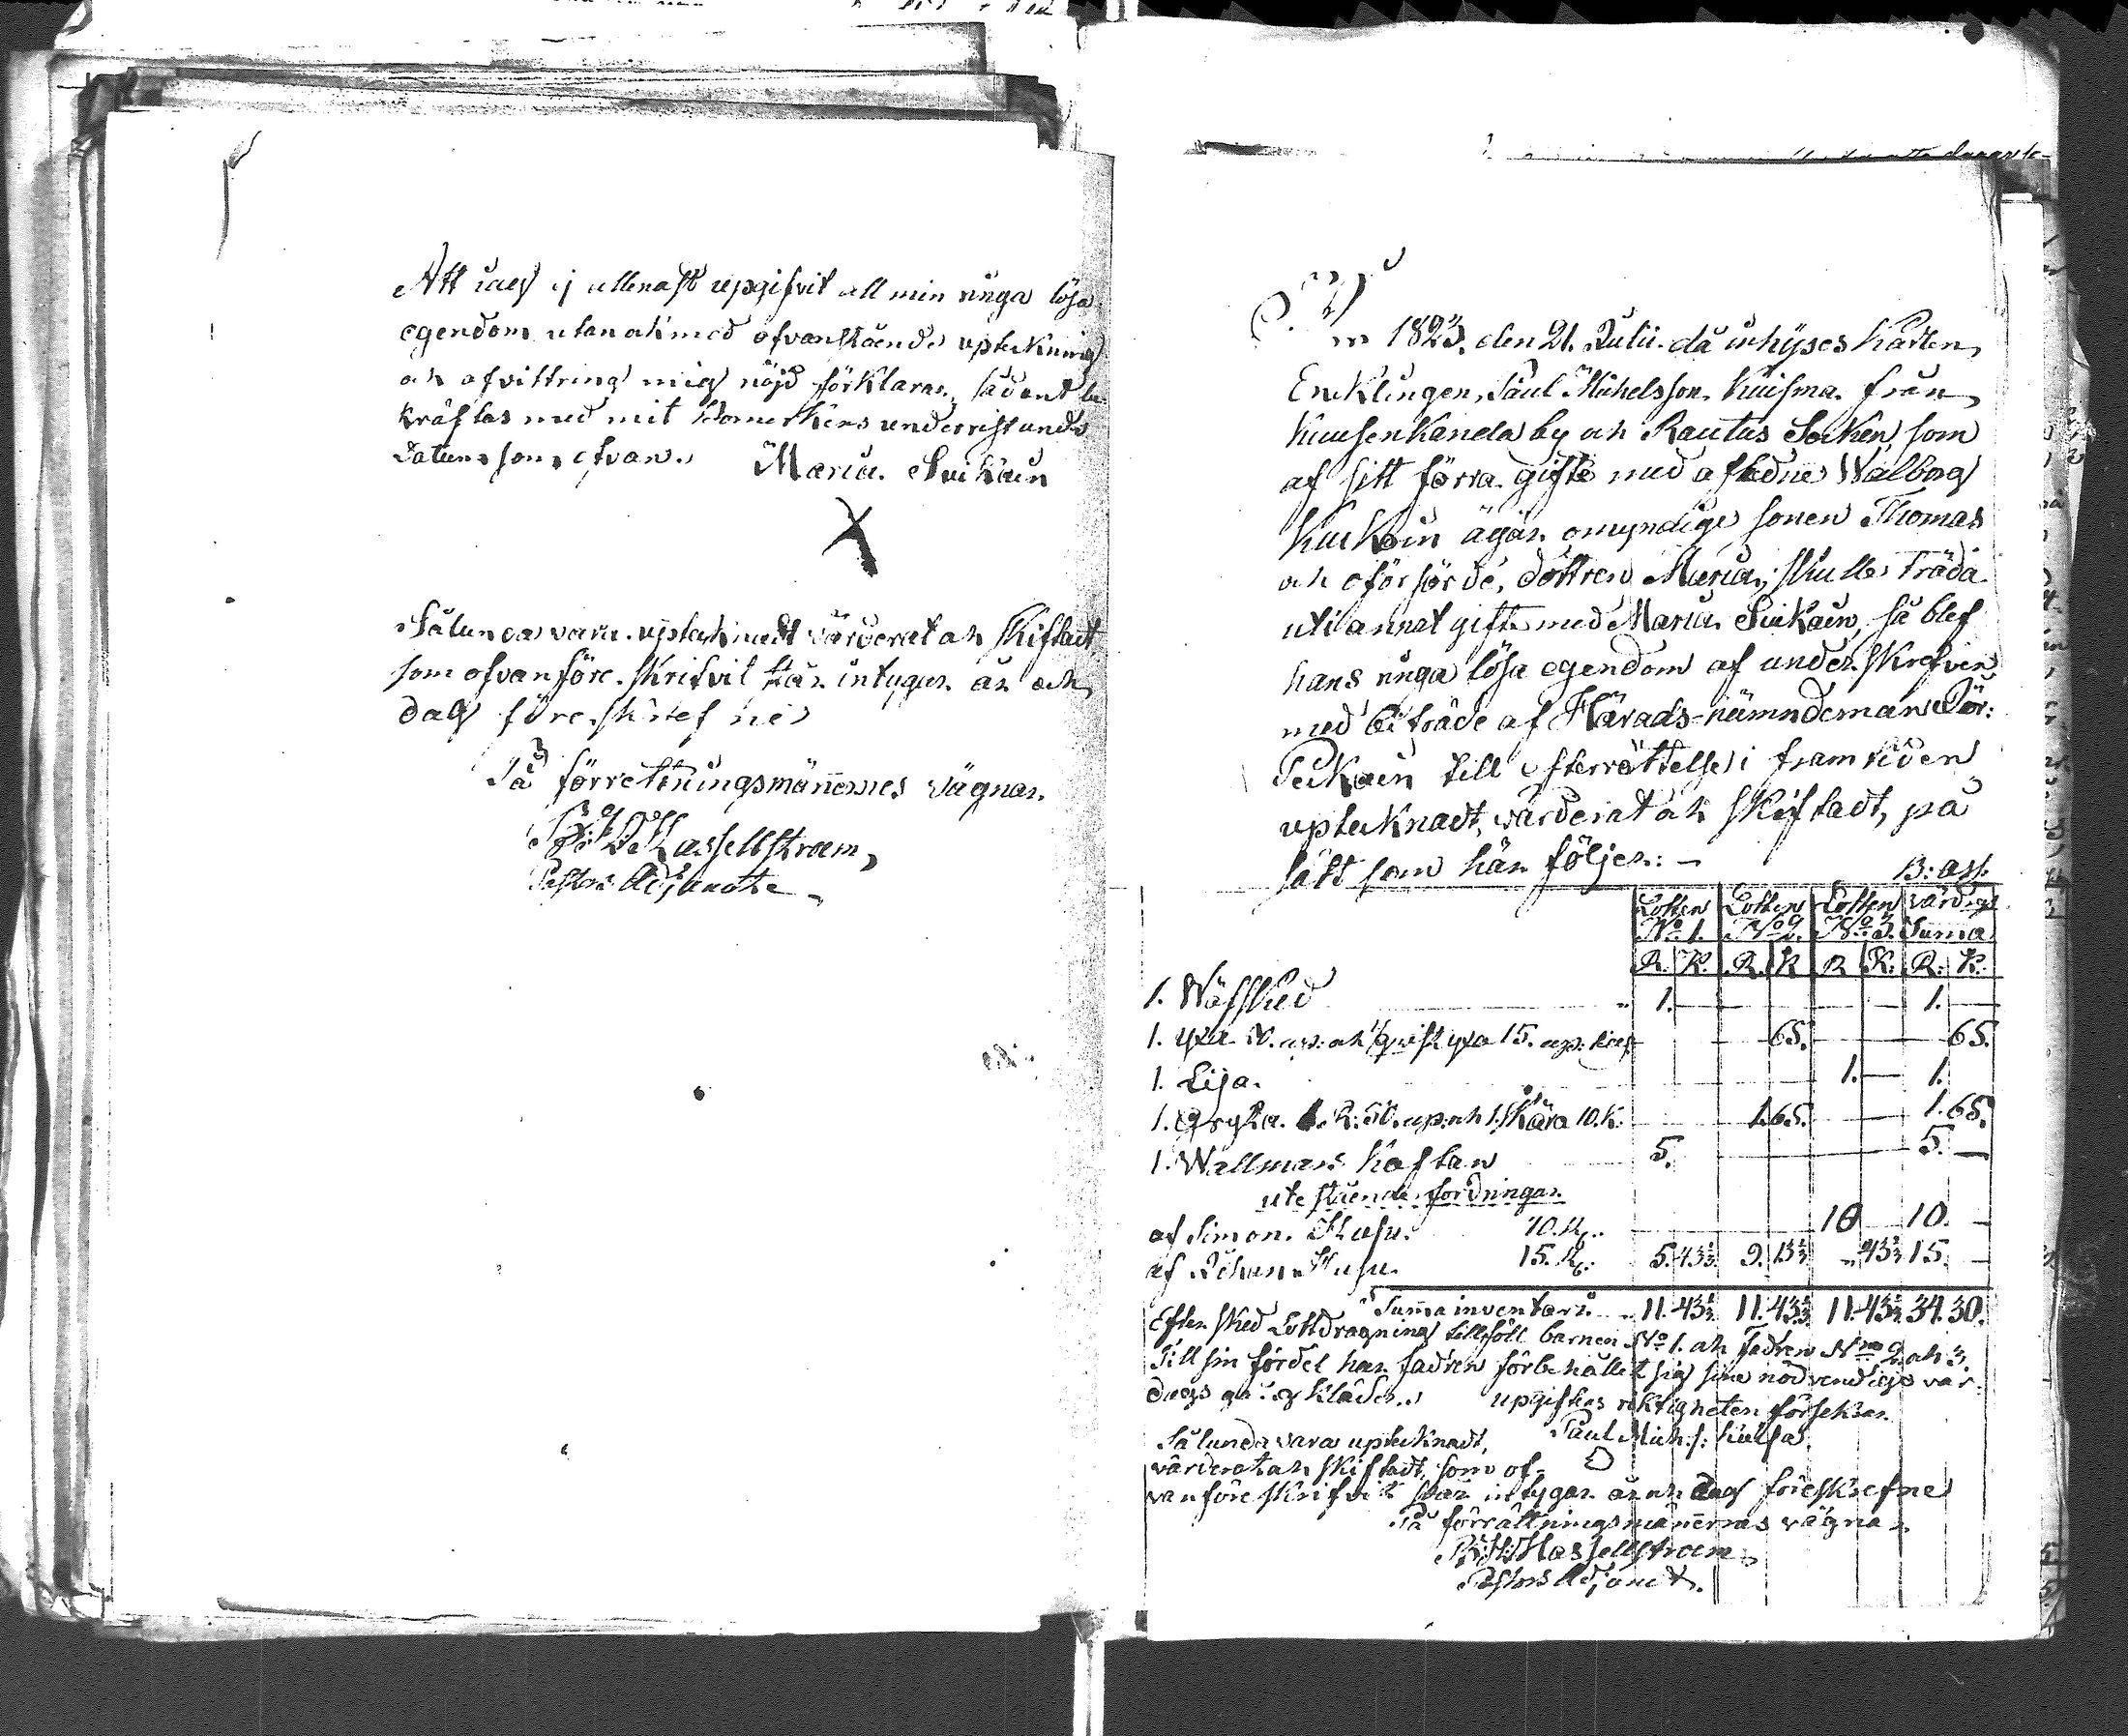 Att iag ej allenast upgifvit all min ringa lösa
egendom utan ok med ofvanstående uptekning
och afvittring mig nöjd förklarar, sådant be
kräftas med mit bomerkens underristande
Datum som ofvan. Maria Sirkäin
X
Sålunda vara uptecknadt värderat ok skiftadt
som ofvanföre skrifvit står intygar år och
dag föreskrefne
På förrettningsmännernes vägnar
Hassellstroem,
Pastors Adjuncte
1823, den 21. Julii då inhyses karlen
Encklingen, Påul Michelsson Kuisma från
Kuusenkanda by ok Rautus Socken, som
af sitt förra gifte med afledne Walborg
äger omyndige sonen Thomas
ok oförsörde, dottren Maria, skulle träda
uti annat gifte med Maria Sirkäin, så blef
hans ringa lösa egendom af underskrefven
med biträde af Härads-nämndeman Pär:
Peckain till efterrättelse i framtiden
upteknadt, värderat ok skiftadt, på
sätt som här följer: –
B: ass:
Lotten Lotten Lotten värdigt
No 1. No 2. No 3. Summa
R. K. R. K R K: R: K:
1. Wäfsked 1. 1.
1. yxa 50. up: ok 1 qvist yxa 15. up: kop 65. 65.
1. Lija. 1. 1.
1. Gryta 1. R: 50. up: ok 1. Skära 10. K: 1.65. 1.65.
1. Wallmars kaftan 5. 5.
utestående fordningar
af Simon 10. R. 10 10.
af Johan 15. R. 5.43⅓ 9.13⅓ „ 43⅓ 15.
Summa inventari: 11.43⅓ 11.43⅓ 11.43⅓ 34.30.
Efter sked Lottdragning tillföll barnen No 1. ok Fadren Nro 2 ok 3.
Till sin fördel har fadren förbehållet sig sine nödvendige var
dags kläder. upgiftens riktigheten försekrar
Paul Mich:s: Kuisa
Sålunda vara upteknadt,
värderat ok skiftadt, som of-
vanföre skrifvit står intygar år ok dag föreskrefne
På förrättningsmännernas vägnar
Hassellstroem
Pastors Adjunct.